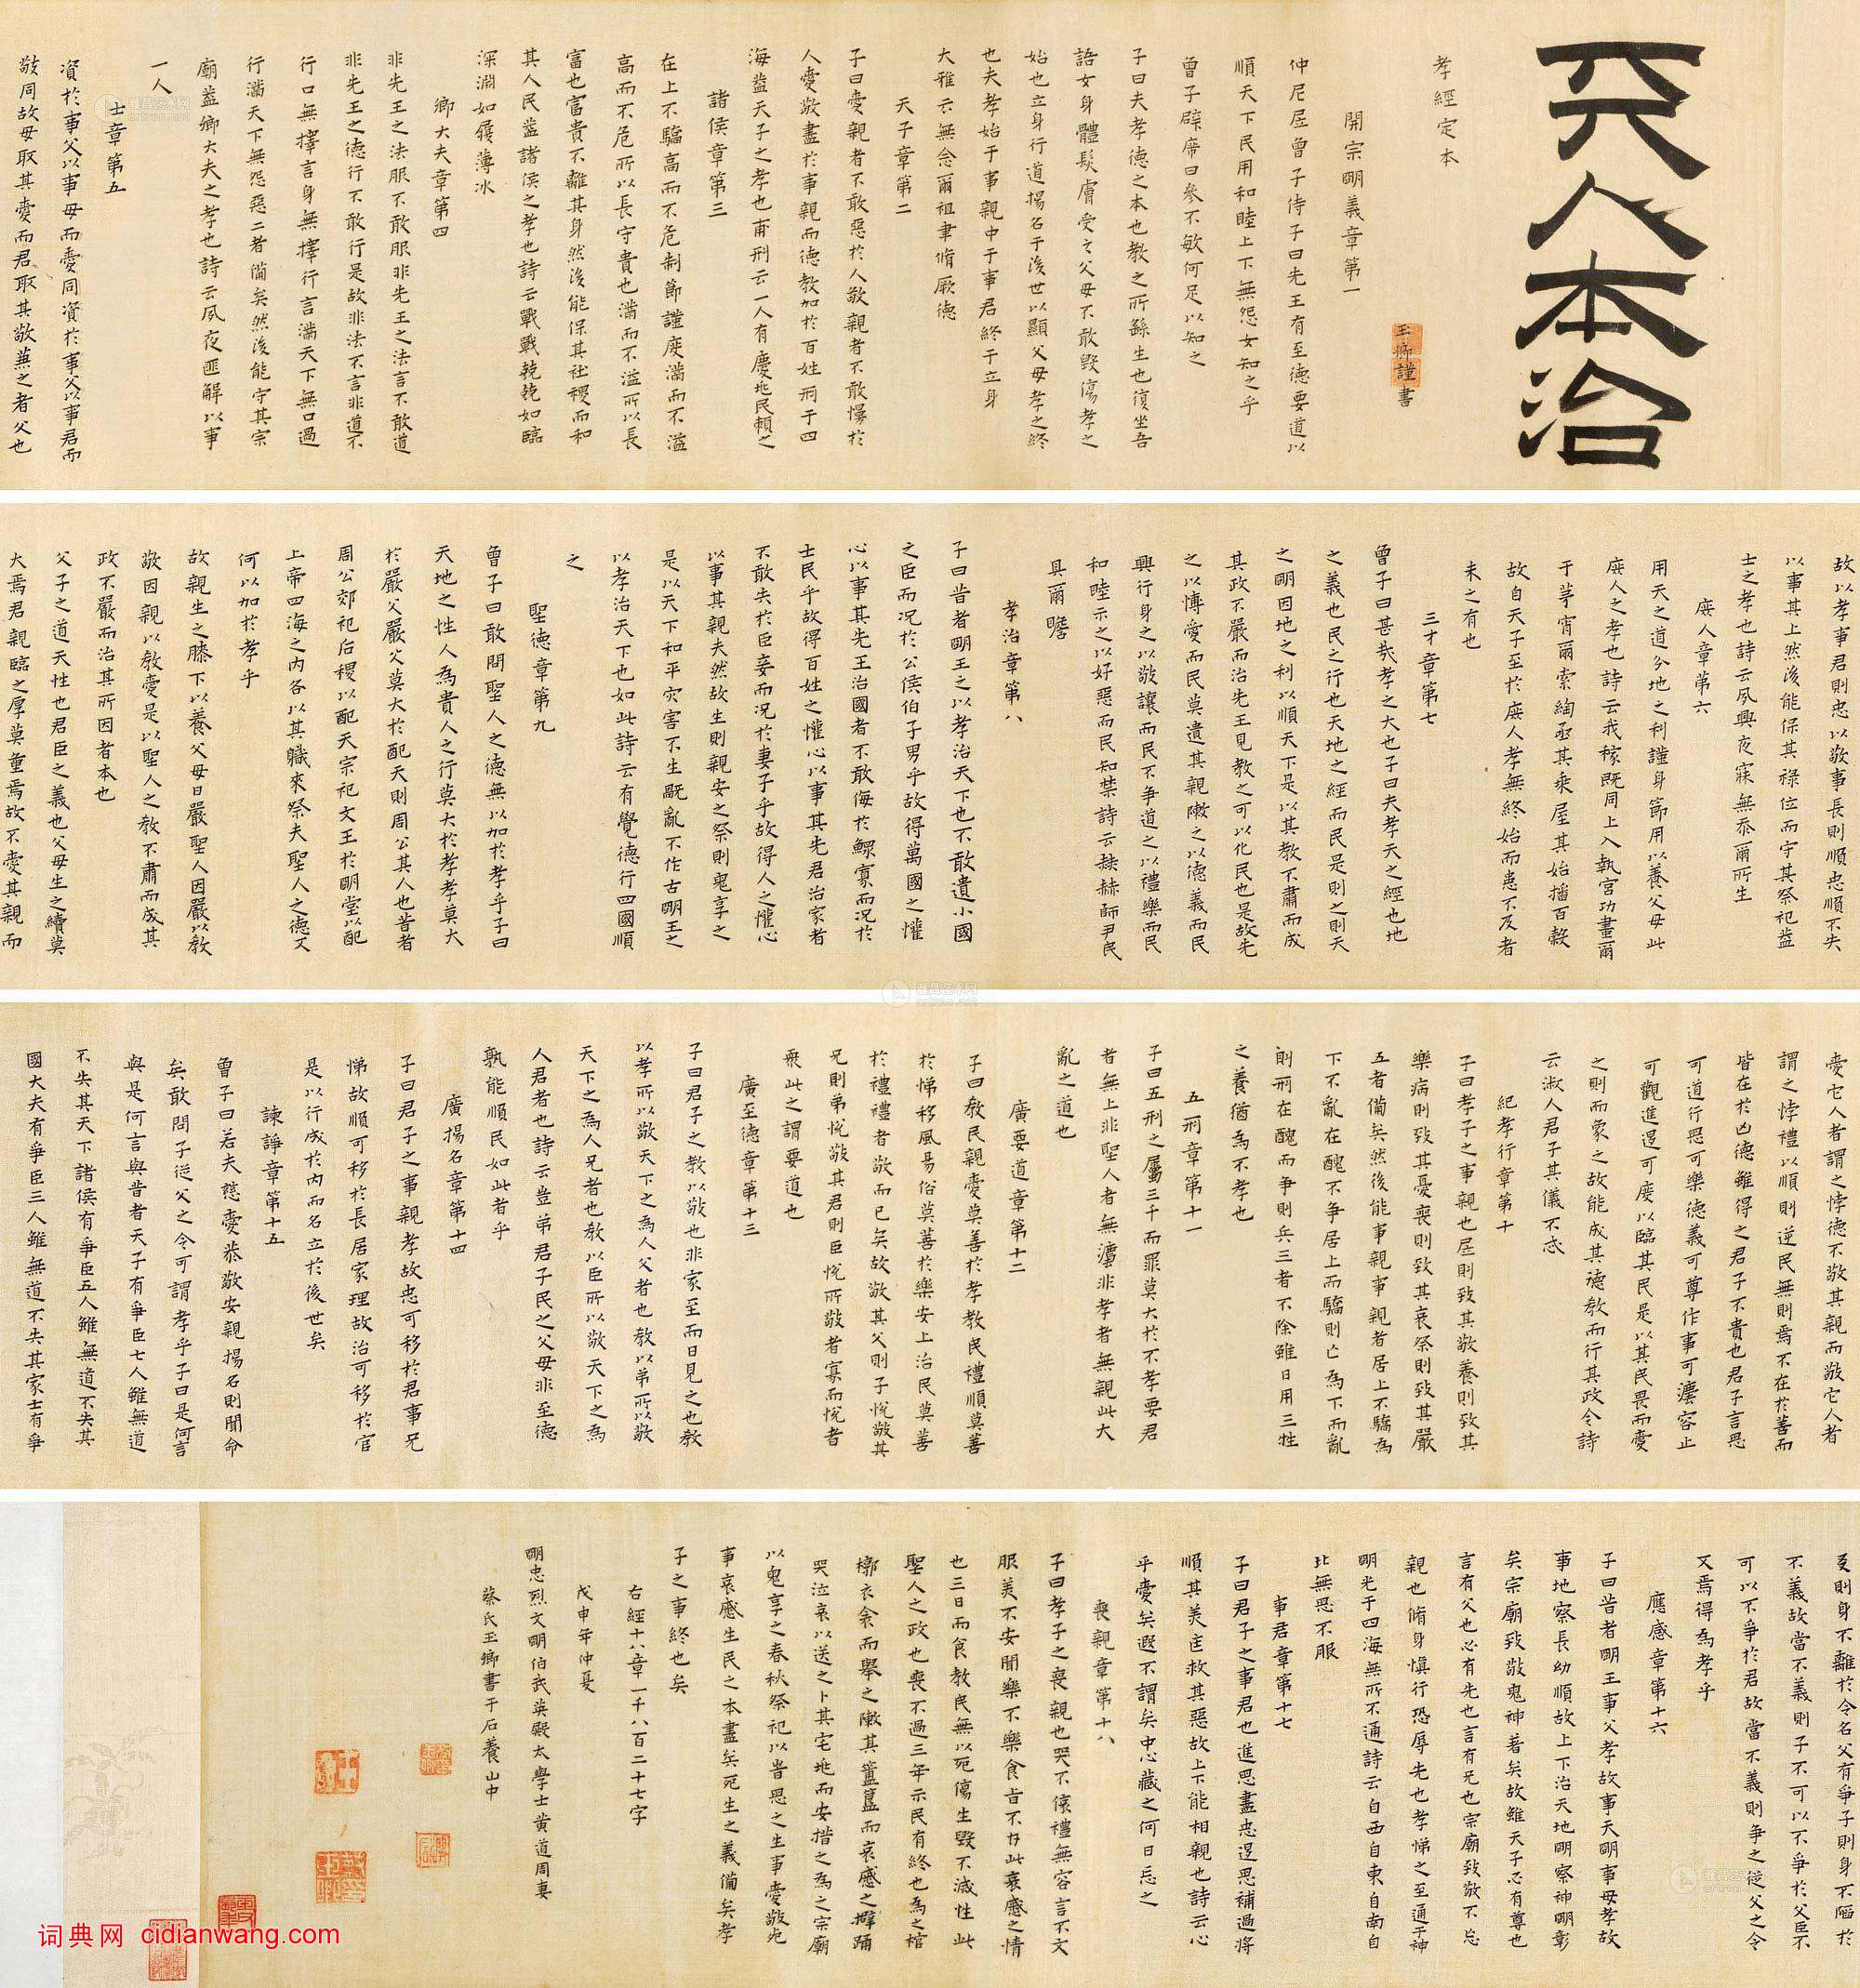 天人本治
孝經定本
玉卿謹書
開宗明義章第一
仲尼凥曾子侍子曰先王有至德要道以
順天下民用和睦上下無怨女知之乎
曾子辟席曰參不敏何足以知之
子曰夫孝德之本也教之所繇生也復坐吾
語女身體髮膚受之父母不敢毀傷孝之
始也立身行道揚名于後世以顯父母孝之終
也夫孝始于事親中于事君終于立身
大雅云無念爾祖聿脩厥德
天子章第二
子曰愛親者不敢惡於人敬親者不敢慢於
人愛敬盡於事親而德教加於百姓刑于四
海葢天子之孝也甫刑云一人有慶兆民賴之
諸侯章第三
在上不驕高而不危制節謹度滿而不溢
高而不危所以長守貴也滿而不溢所以長
富也富貴不離其身然後能保其社稷而和
其人民葢諸侯之孝也詩云戰戰兢兢如臨
深淵如履薄冰
卿大夫章第四
非先王之法服不敢服非先王之法言不敢道
非先王之德行不敢行是故非法不言非道不
行口無擇言身無擇行言滿天下無口過
行滿天下無怨惡三者備矣然後能守其宗
廟葢卿大夫之孝也詩云夙夜匪解以事
一人
士章第五
資於事父以事母而愛同資於事父以事君而
敬同故母取其愛而君取其敬兼之者父也
故以孝事君則忠以敬事長則順忠順不失
以事其上然後能保其祿位而守其祭祀葢
士之孝也詩云夙興夜寐無忝爾所生
庶人章第六
用天之道分地之利謹身節用以養父母此
庶人之孝也詩云我稼既同上入執宮功晝爾
于茅宵爾索綯亟其乘屋其始播百穀
故自天子至於庶人孝無終始而患不及者
未之有也
三才章第七
曾子曰甚哉孝之大也子曰夫孝天之經也地
之義也民之行也天地之經而民是則之則天
之明因地之利以順天下是以其教不肅而成
其政不嚴而治先王見教之可以化民也是故先
之以博愛而民莫遺其親敶之以德義而民
興行身之以敬讓而民不爭道之以禮樂而民
和睦示之以好惡而民知禁詩云赫赫師尹民
具爾瞻
孝治章第八
子曰昔者明王之以孝治天下也不敢遺小國
之臣而況於公侯伯子男乎故得萬國之懽
心以事其先王治國者不敢侮於鰥寡而況於
士民乎故得百姓之懽心以事其先君治家者
不敢失於臣妾而況於妻子乎故得人之懽心
以事其親夫然故生則親安之祭則鬼享之
是以天下和平灾害不生旤亂不作古明王之
以孝治天下也如此詩云有覺德行四國順
之
聖德章第九
曾子曰敢問聖人之德無以加於孝乎子曰
天地之性人為貴人之行莫大於孝孝莫大
於嚴父嚴父莫大於配天則周公其人也昔者
周公郊祀后稷以配天宗祀文王於明堂以配
上帝四海之內各以其職來祭夫聖人之德又
何以加於孝乎
故親生之膝下以養父母日嚴聖人因嚴以教
敬因親以教愛是以聖人之教不肅而成其
政不嚴而治其所因者本也
父子之道天性也君臣之義也父母生之續莫
大焉君親臨之厚莫重焉故不愛其親而
愛它人者謂之悖德不敬其親而敬它人者
謂之悖禮以順則逆民無則焉不在於善而
皆在於凶德雖得之君子不貴也君子言思
可道行思可樂德義可尊作事可灋容止
可觀進退可度以臨其民是以其民畏而愛
之則而象之故能成其德教而行其政令詩
云淑人君子其儀不忒
紀孝行章第十
子曰孝子之事親也凥則致其敬養則致其
樂病則致其憂喪則致其哀祭則致其嚴
五者備矣然後能事親事親者居上不驕為
下不亂在醜不爭居上而驕則亡為下而亂
則刑在醜而爭則兵三者不除雖日用三牲
之養猶為不孝也
五刑章第十一
子曰五刑之屬三千而罪莫大於不孝要君
者無上非聖人者無灋非孝者無親此大
亂之道也
廣要道章第十二
子曰教民親愛莫善於孝教民禮順莫善
於悌移風易俗莫善於樂安上治民莫善
於禮禮者敬而已矣故敬其父則子悅敬其
兄則弟悅敬其君則臣悅所敬者寡而悅者
眾此之謂要道也
廣至德章第十三
子曰君子之教以敬也非家至而日見之也教
以孝所以敬天下之為人父者也教以弟所以敬
天下之為人兄者也教以臣所以敬天下之為
人君者也詩云豈弟君子民之父母非至德
孰能順民如此者乎
廣揚名章第十四
子曰君子之事親孝故忠可移於君事兄
悌故順可移於長居家理故治可移於官
是以行成於內而名立於後世矣
諫諍章第十五
曾子曰若夫慈愛恭敬安親揚名則聞命
矣敢問子從父之令可謂孝乎子曰是何言
與是何言與昔者天子有爭臣七人雖無道
不失其天下諸侯有爭臣五人雖無道不失其
國大夫有爭臣三人雖無道不失其家士有爭
友則身不離於令名父有爭子則身不陷於
不義故當不義則子不可以不爭於父臣不
可以不爭於君故當不義則爭之從父之令
又焉得為孝乎
應感章第十六
子曰昔者明王事父孝故事天明事母孝故
事地察長幼順故上下治天地明察神明彰
矣宗廟致敬鬼神著矣故雖天子必有尊也
言有父也必有先也言有兄也宗廟致敬不忘
親也脩身慎行恐辱先也孝悌之至通于神
明光于四海無所不通詩云自西自東自南自
北無思不服
事君章第十七
子曰君子之事君也進思盡忠退思補過將
順其美匡救其惡故上下能相親也詩云心
乎愛矣遐不謂矣中心藏之何日忘之
喪親章第十八
子曰孝子之喪親也哭不偯禮無容言不文
服美不安聞樂不樂食旨不甘此哀慼之情
也三日而食教民無以死傷生毀不滅性此
聖人之政也喪不過三年示民有終也為之棺
槨衣衾而舉之敶其簠簋而哀慼之擗踊
哭泣哀以送之卜其宅兆而安措之為之宗廟
以鬼享之春秋祭祀以時思之生事愛敬死
事哀慼生民之本盡矣死生之義備矣孝
子之事終也矣
右經十八章一千八百二十七字
戊申年仲夏
明忠烈文明伯武英殿太學士黄道周妻
蔡氏玉卿書于石養山中
雅昌艺术网
artron.net
词典网 cidianwang.com